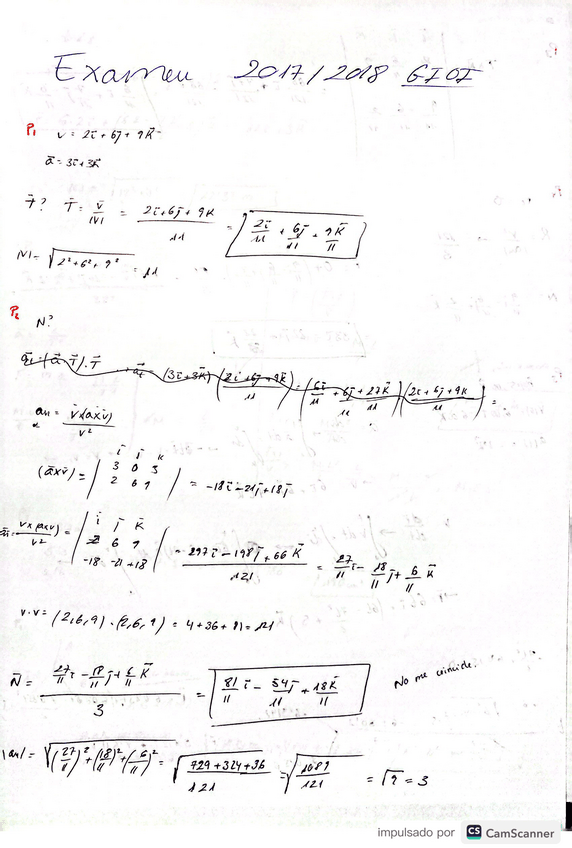 Examen 2017/2018 GIOI
P1 v = 2i + 6j + 9k
a = 3i + 3k
T? T = v/|v| = (2i + 6j + 9k)/11 = 2i/11 + 6j/11 + 9k/11
|v| = √(2² + 6² + 9²) = 11
P2 N?
(a · T) · T (3i + 3k) (2i + 6j + 9k)/11 = (6i/11 + 6j/11 + 27k/11) (2i + 6j + 9k)/11 =
an = v x (a x v)/v²
(a x v) = | i j k 3 0 3 2 6 9 | = -18i - 21j + 18j
v x (a x v)/v² = | i j k 2 6 9 -18 -21 +18 | = (297i - 198j + 66k)/121 = 27/11 i - 18/11 j + 6/11 k
v · v = (2, 6, 9) · (2, 6, 9) = 4 + 36 + 81 = 121
N = (27/11 i - 18/11 j + 6/11 k)/3 = 81/11 i - 54j/11 + 18k/11
No me coincide.
|an| = √((27/11)² + (18/11)² + (6/11)²) = √((729 + 324 + 36)/121) = √(1089/121) = √9 = 3
impulsado por CS CamScanner